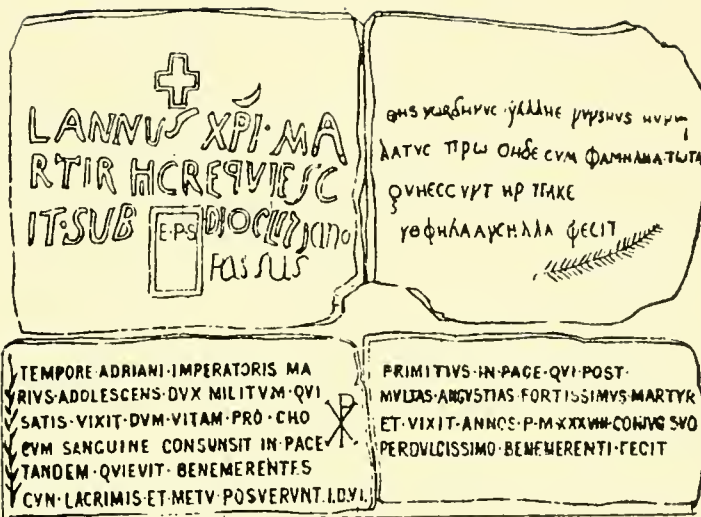 LANNUS XPI·MA
RTIR HC REQVIESC
IT·SUB DIOCLITJANO
E·P·S
PASSUS
ΛΑΤVC ΠΡω ΦΗΔΕ CVM ΦΑΜΗΛΗΑ·ΤωΤΑ
QVHECCVNT HN ΠΑΚΕ
ΦECIT
TEMPORE·ADRIANI·IMPERATORIS MA
RIVS·ADOLESCENS·DVX MILITVM·QVI
SATIS·VIXIT·DVM·VITAM·PRO·CHO
CVM SANGUINE CONSUNSIT IN PACE
TANDEM·QVIEVIT·BENEMERENTES
CVN·LACRIMIS·ET·METV·POSVERVNT·I.D.VI.
PRIMITIVS·IN·PACE·QVI·POST·
MVLTAS·ANGVSTIAS·FORTISSIMVS·MARTYR
ET·VIXIT·ANNOS·P·M·XXXVIII·CONJVG·SVO
PERDVLCISSIMO·BENEMERENTI·FECIT